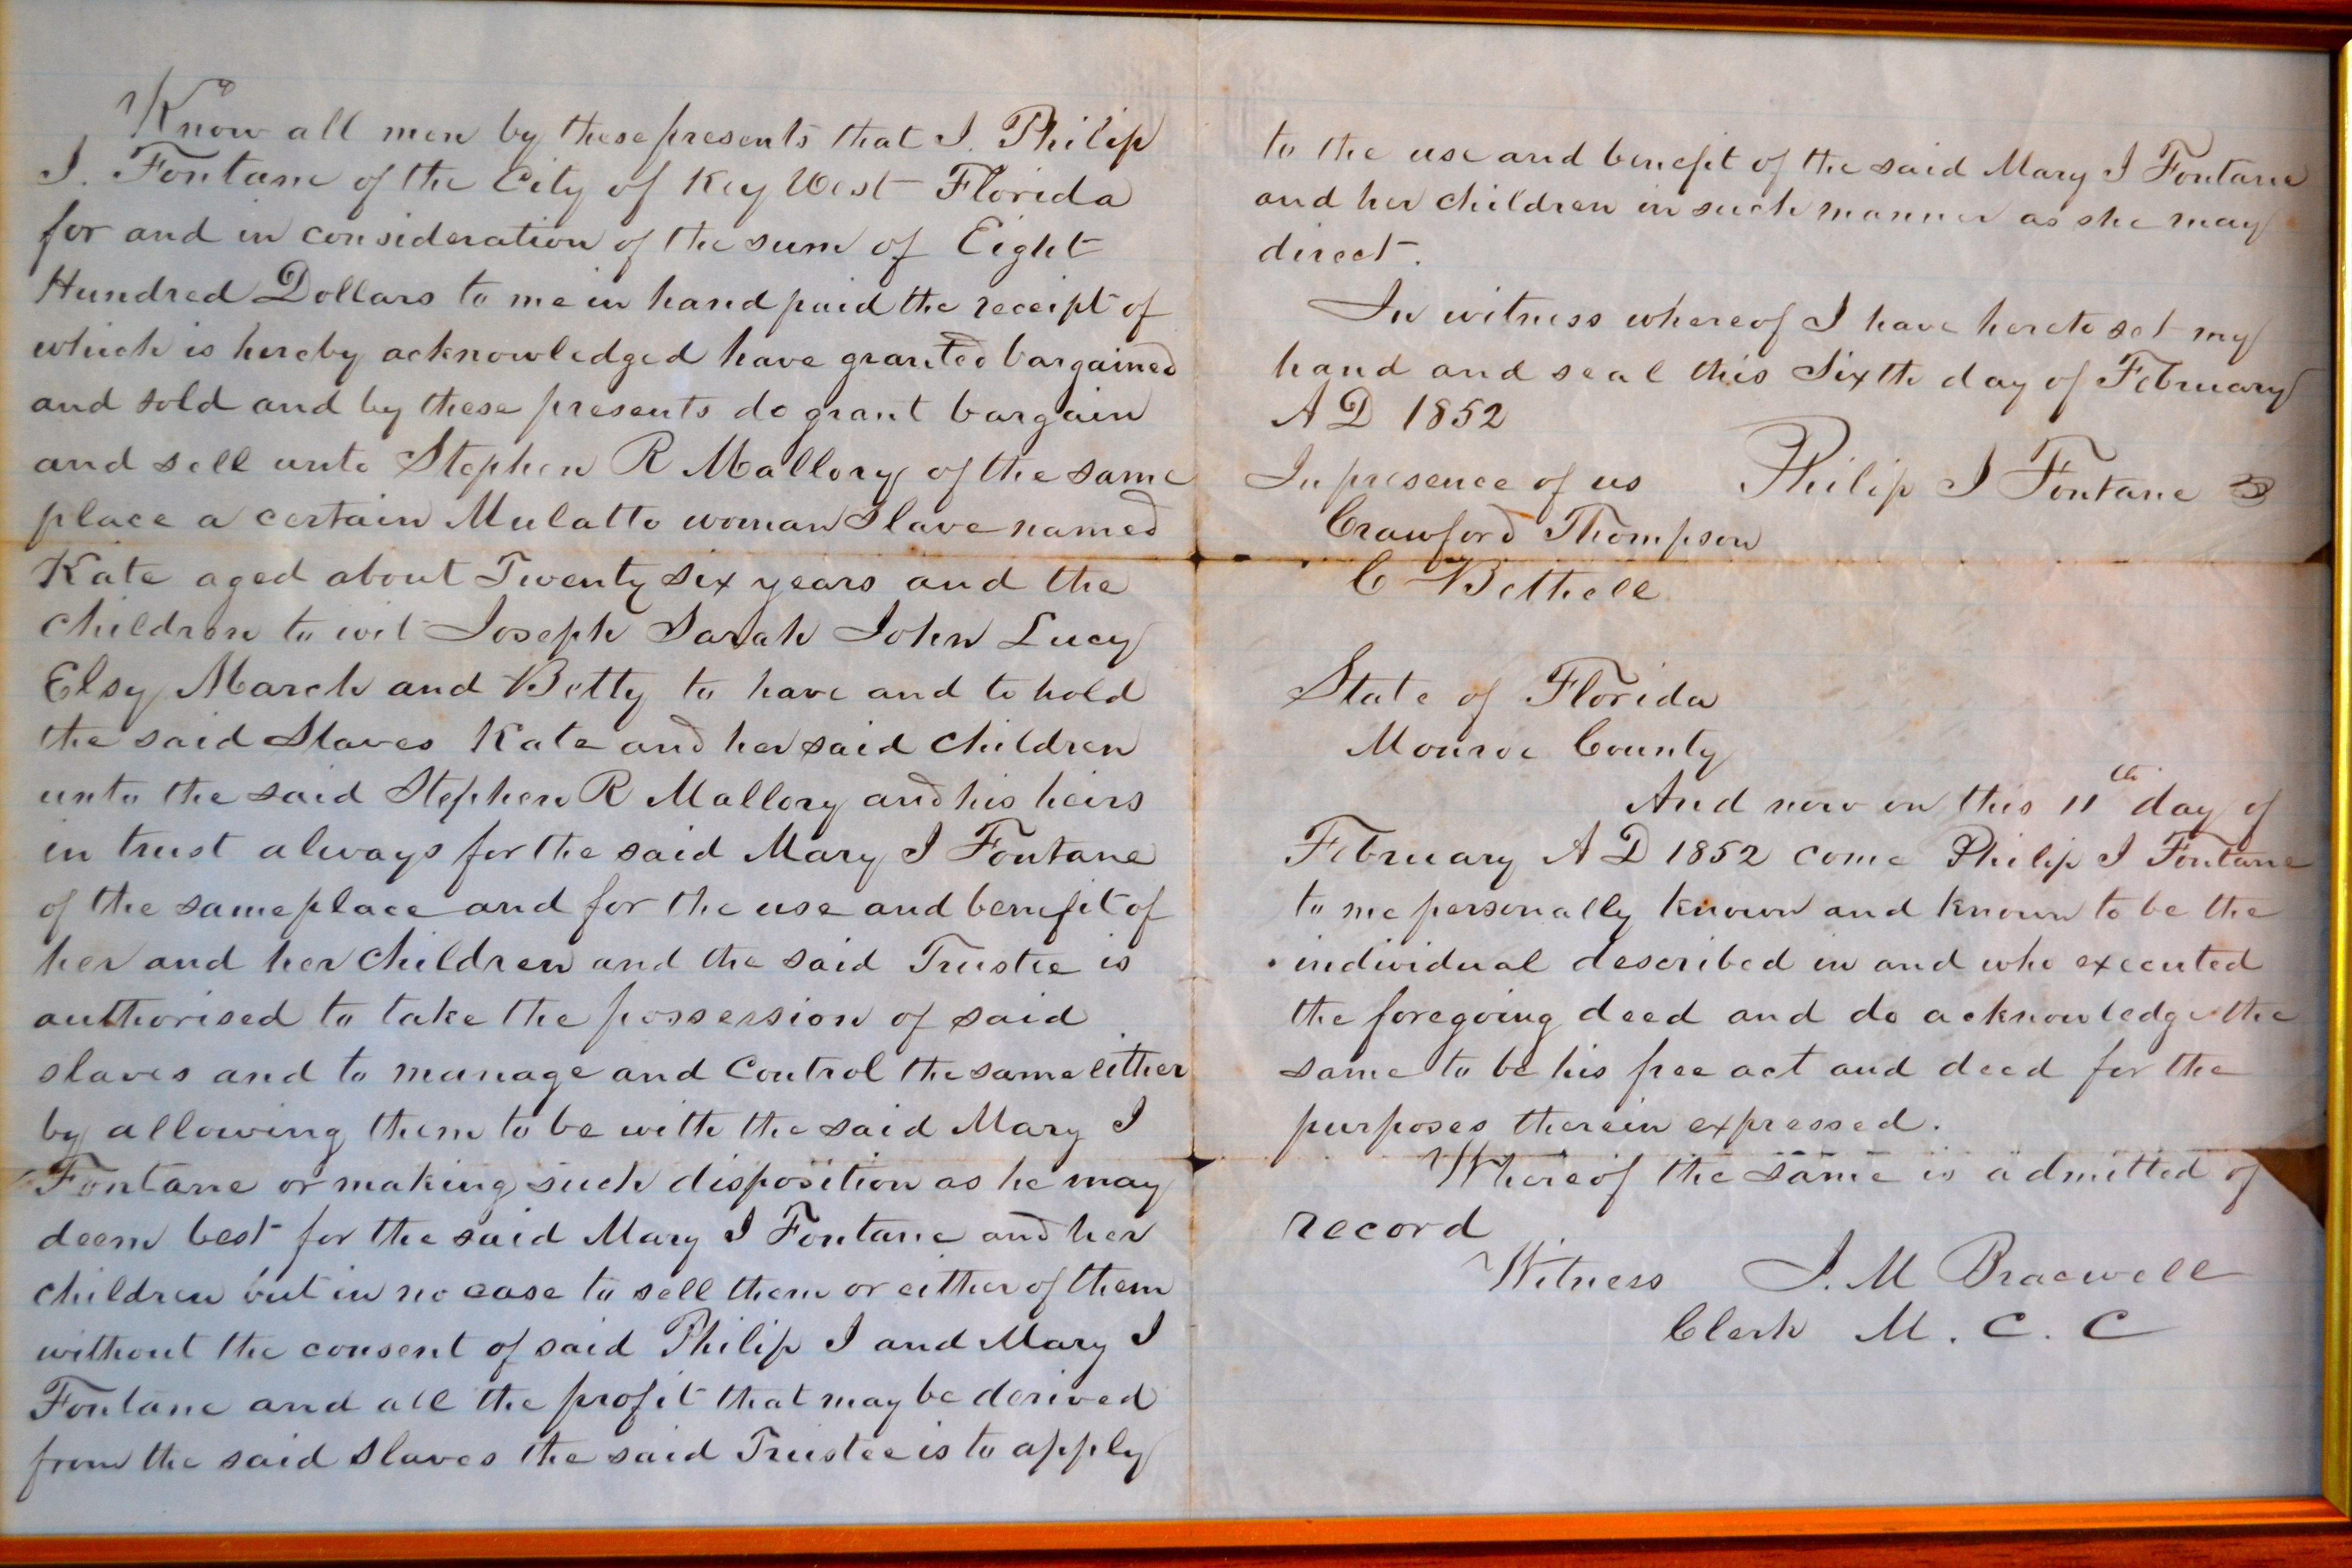 Know all men by these presents that I. Philip
J. Fontane of the City of Key West Florida
for and in consideration of the sum of Eight
Hundred Dollars to me in hand paid the receipt of
which is hereby acknowledged have granted bargained
and sold and by these presents do grant bargain
and sell unto Stephen R Mallory of the same
place a certain Mulatto woman Slave named
Kate aged about Twenty six years and the
children to wit Joseph Sarah John Lucy
Elsy March and Betty to have and to hold
the said Slaves Kate and her said children
unto the said Stephen R Mallory and his heirs
in trust always for the said Mary J Fontane
of the same place and for the use and benefit of
her and her children and the said Trustee is
authorised to take the possession of said
slaves and to manage and control the same either
by allowing them to be with the said Mary J
Fontane or making such disposition as he may
deem best for the said Mary J Fontane and her
children but in no case to sell them or either of them
without the consent of said Philip J and Mary J
Fontane and all the profit that may be derived
from the said Slaves the said Trustee is to apply
to the use and benefit of the said Mary J Fontane
and her children in such manner as she may
direct.
In witness whereof I have hereto set my
hand and seal this Sixth day of February
A D 1852
In presence of us Philip J Fontane
Crawford Thompson
C Bethell
State of Florida
Monroe County
And now on this 11th day of
February A D 1852 come Philip J Fontane
to me personally known and known to be the
individual described in and who executed
the foregoing deed and do acknowledge the
same to be his free act and deed for the
purposes therein expressed.
Whereof the same is admitted of
record
Witness J. M Bracewell
Clerk M. C. C